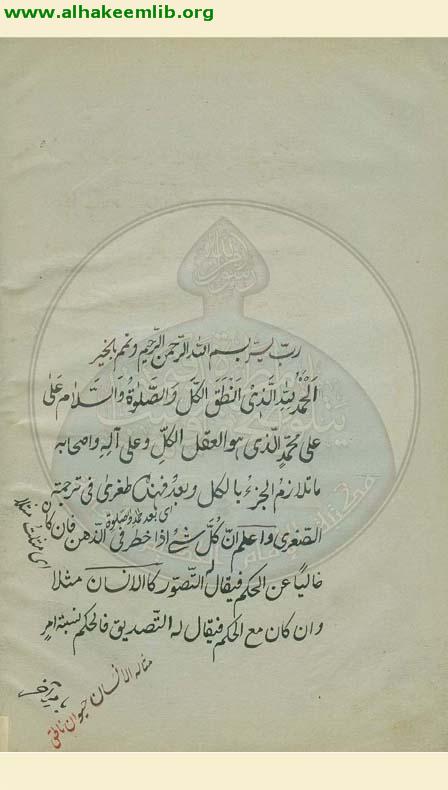 www.alhakeemlib.org
ربّ يسّر بسم الله الرّحمن الرّحيم وتمم بالخير
الحمد لله الّذى انطق الكلّ والصّلوة والسّلام على
على محمّدٍ الّذى هو العقل الكلّ وعلى آله واصحابه
ما تلازم الجزء بالكل وبعد فهذه طغرى فى ترجمة
اى بعد حمد وصلوة
الصّغرى واعلم انّ كلّ شئ اذا خطر فى الذّهن فان كان
خاليًا عن الحكم فيقال له التّصوّر كالانسان مثلا
وان كان مع الحكم فيقال له التّصديق فالحكم نسبة امرٍ
مثاله الانسان حيوان ناطق